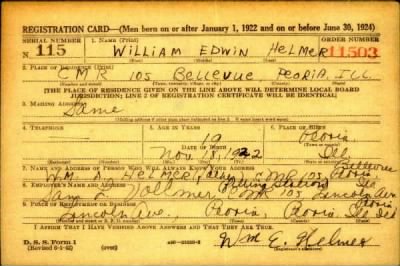 REGISTRATION CARD—(Men born on or after January 1, 1922 and on or before June 30, 1924)
SERIAL NUMBER 1. NAME (Print) ORDER NUMBER
115 WILLIAM EDWIN HELMER 11503
(First) (Middle) (Last)
2. PLACE OF RESIDENCE (Print)
CMR 105 BELLEVUE, PEORIA, ILL.
[THE PLACE OF RESIDENCE GIVEN ON THE LINE ABOVE WILL DETERMINE LOCAL BOARD
JURISDICTION; LINE 2 OF REGISTRATION CERTIFICATE WILL BE IDENTICAL]
3. MAILING ADDRESS
Same
4. TELEPHONE 5. AGE IN YEARS 6. PLACE OF BIRTH
19 Peoria
DATE OF BIRTH
Nov. 1922 Ill
7. NAME AND ADDRESS OF PERSON WHO WILL ALWAYS KNOW YOUR ADDRESS Bellevue
WM. HELMER CMR 105, Peoria,
8. EMPLOYER'S NAME AND ADDRESS Filling Station Ill
Vollmer CMR 105 Lincoln Ave
9. PLACE OF EMPLOYMENT OR BUSINESS
Lincoln Ave., Peoria, Peoria, Ill
I AFFIRM THAT I HAVE VERIFIED ABOVE ANSWERS AND THAT THEY ARE TRUE.
D. S. S. Form 1 (over)
(Revised 6-1-42) Wm E. Helmer